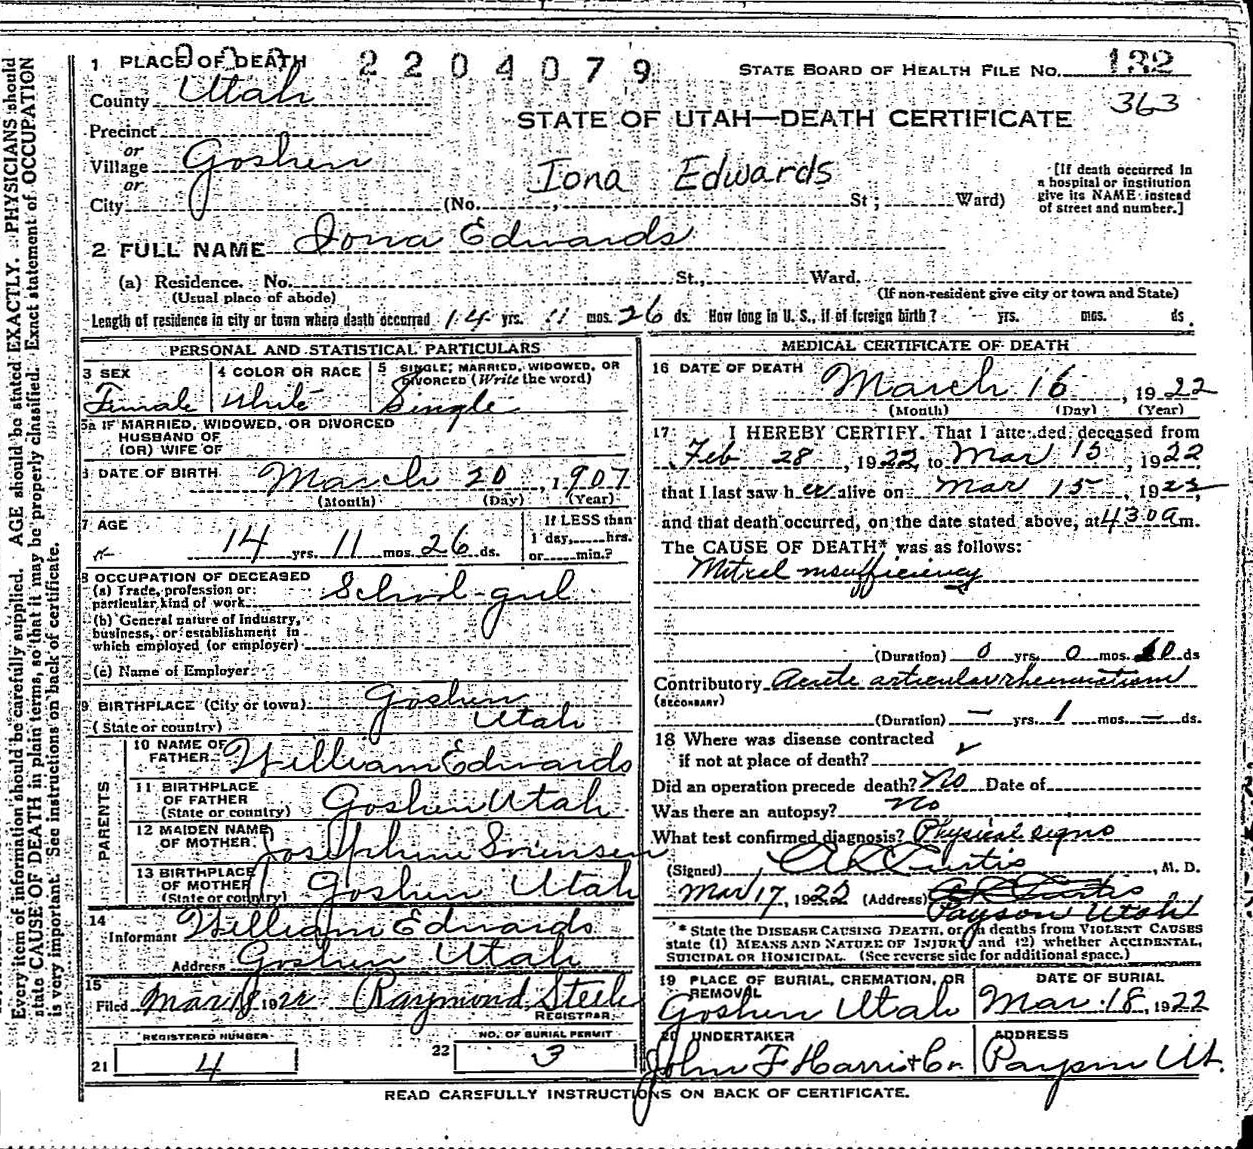 1 PLACE OF DEATH
2204079
STATE BOARD OF HEALTH FILE NO. 132
363
County Utah
STATE OF UTAH—DEATH CERTIFICATE
Precinct
or
Village Goshen
or
City (No. , St; Ward)
Iona Edwards
[If death occurred in
a hospital or institution
give its NAME instead
of street and number.]
2 FULL NAME Iona Edwards
(a) Residence. No. St., Ward.
(Usual place of abode)
(If non-resident give city or town and State)
Length of residence in city or town where death occurred 14 yrs. 11 mos. 26 ds. How long in U. S., if of foreign birth? yrs. mos. ds.
PERSONAL AND STATISTICAL PARTICULARS
3 SEX
Female
4 COLOR OR RACE
White
5 SINGLE, MARRIED, WIDOWED, OR
DIVORCED (Write the word)
Single
5a IF MARRIED, WIDOWED, OR DIVORCED
HUSBAND OF
(OR) WIFE OF
6 DATE OF BIRTH March 20, 1907
(Month) (Day) (Year)
7 AGE
14 yrs. 11 mos. 26 ds.
If LESS than
1 day, hrs.
or min.?
8 OCCUPATION OF DECEASED
(a) Trade, profession or
particular kind of work School girl
(b) General nature of industry,
business, or establishment in
which employed (or employer)
(c) Name of Employer
9 BIRTHPLACE (City or town) Goshen
(State or country) Utah
PARENTS
10 NAME OF
FATHER William Edwards
11 BIRTHPLACE
OF FATHER
(State or country) Goshen Utah
12 MAIDEN NAME
OF MOTHER Josephine Sorensen
13 BIRTHPLACE
OF MOTHER
(State or country) Goshen Utah
14
Informant William Edwards
Address Goshen Utah
15
Filed Mar 18 1922 Raymond Steele
REGISTRAR.
REGISTERED NUMBER
21 4
NO. OF BURIAL PERMIT
22 3
MEDICAL CERTIFICATE OF DEATH
16 DATE OF DEATH March 16, 1922
(Month) (Day) (Year)
17 I HEREBY CERTIFY. That I attended deceased from
Feb 28, 1922, to Mar 15, 1922
that I last saw her alive on Mar 15, 1922,
and that death occurred, on the date stated above, at 430a m.
The CAUSE OF DEATH* was as follows:
Mitral insufficiency
(Duration) 0 yrs. 0 mos. 10 ds
Contributory Acute articular rheumatism
(SECONDARY)
(Duration) — yrs. 1 mos. — ds.
18 Where was disease contracted
if not at place of death?
Did an operation precede death? No Date of
Was there an autopsy? No
What test confirmed diagnosis? Physical signs
(Signed) Curtis, M. D.
Mar 17, 1922 (Address)
Payson Utah
* State the DISEASE CAUSING DEATH, or, in deaths from VIOLENT CAUSES
state (1) MEANS AND NATURE OF INJURY and (2) whether ACCIDENTAL,
SUICIDAL OR HOMICIDAL. (See reverse side for additional space.)
19 PLACE OF BURIAL, CREMATION, OR
REMOVAL
Goshen Utah
DATE OF BURIAL
Mar. 18, 1922
20 UNDERTAKER
John F Harris & Co.
ADDRESS
Payson Ut.
READ CAREFULLY INSTRUCTIONS ON BACK OF CERTIFICATE.
Every item of information should be carefully supplied. AGE should be stated EXACTLY. PHYSICIANS should
state CAUSE OF DEATH in plain terms, so that it may be properly classified. Exact statement of OCCUPATION
is very important. See instructions on back of certificate.